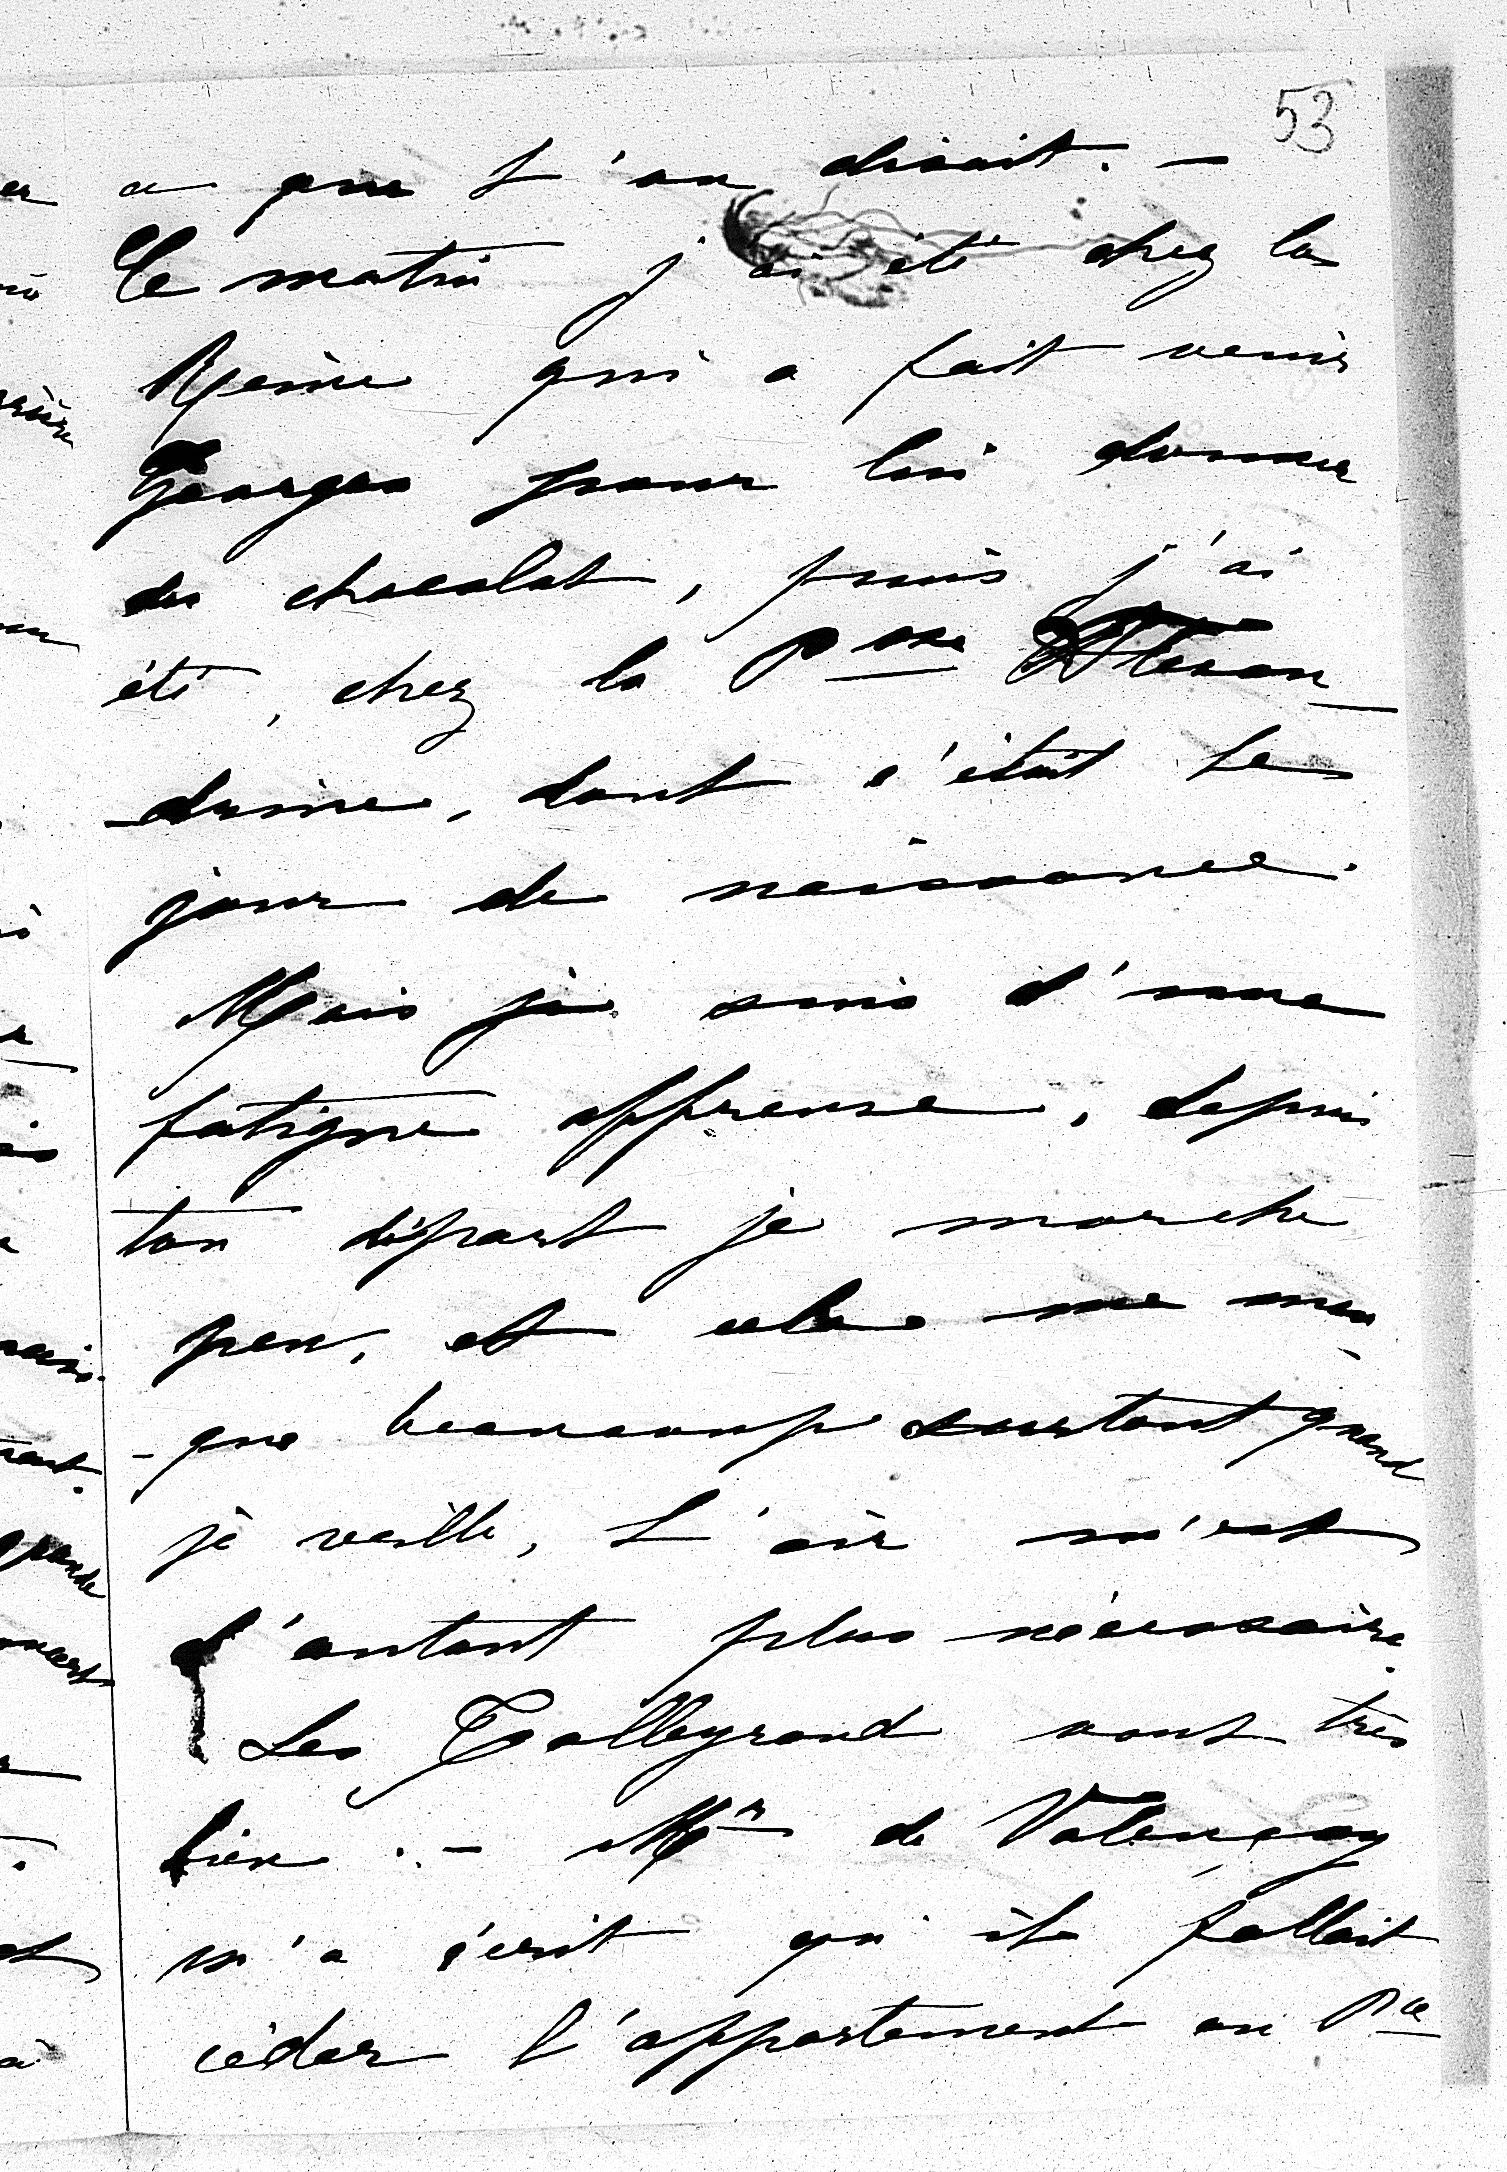 53
ce que l'on disait. –
Ce matin j'ai été chez la
Reine qui a fait venir
Georges pour lui donner
du chocolat, puis j'ai
été, chez la Psse Alexan
-drine, dont c'était le
jour de naissance.
Mais je suis d'une
fatigue affreuse, depuis
ton départ je marche
peu, et cela me man
-que beaucoup surtout quand
je veille, l'air m'est
d'autant plus nécessaire.
Les Talleyrand vont très
bien. – Mr de Valençay
m'a écrit qu'il fallait
céder l'appartement au Pce